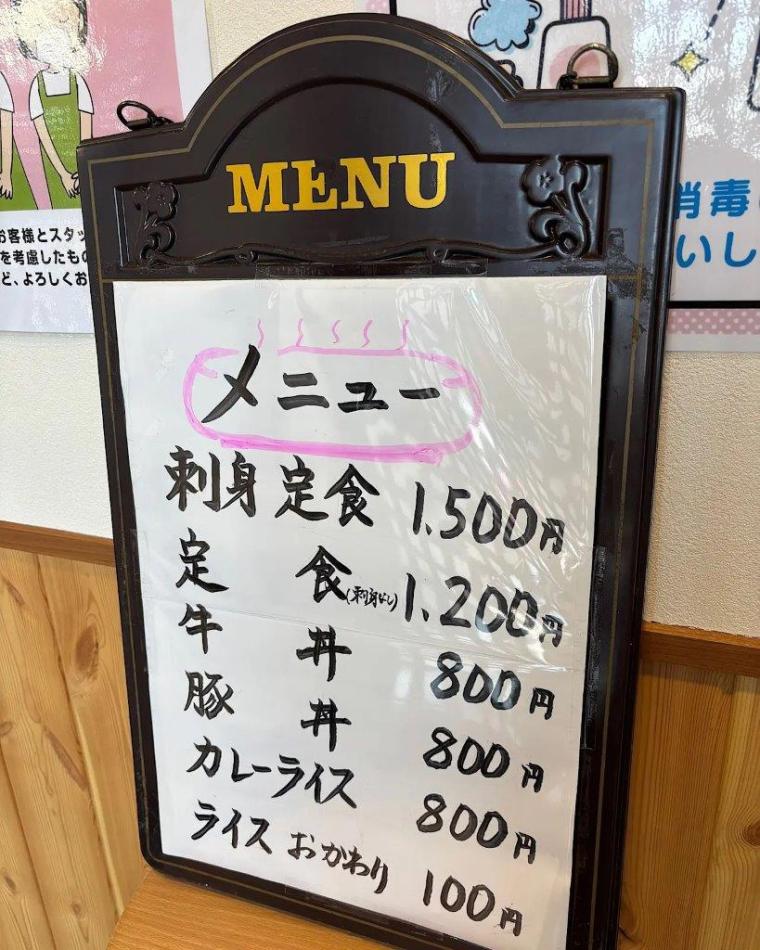 MENU
メニュー
刺身定食 1,500円
定食(刺身なし) 1,200円
牛丼 800円
豚丼 800円
カレーライス 800円
ライス おかわり 100円
お客様とスタッ
を考慮したもの
ど、よろしくお
消毒
いし